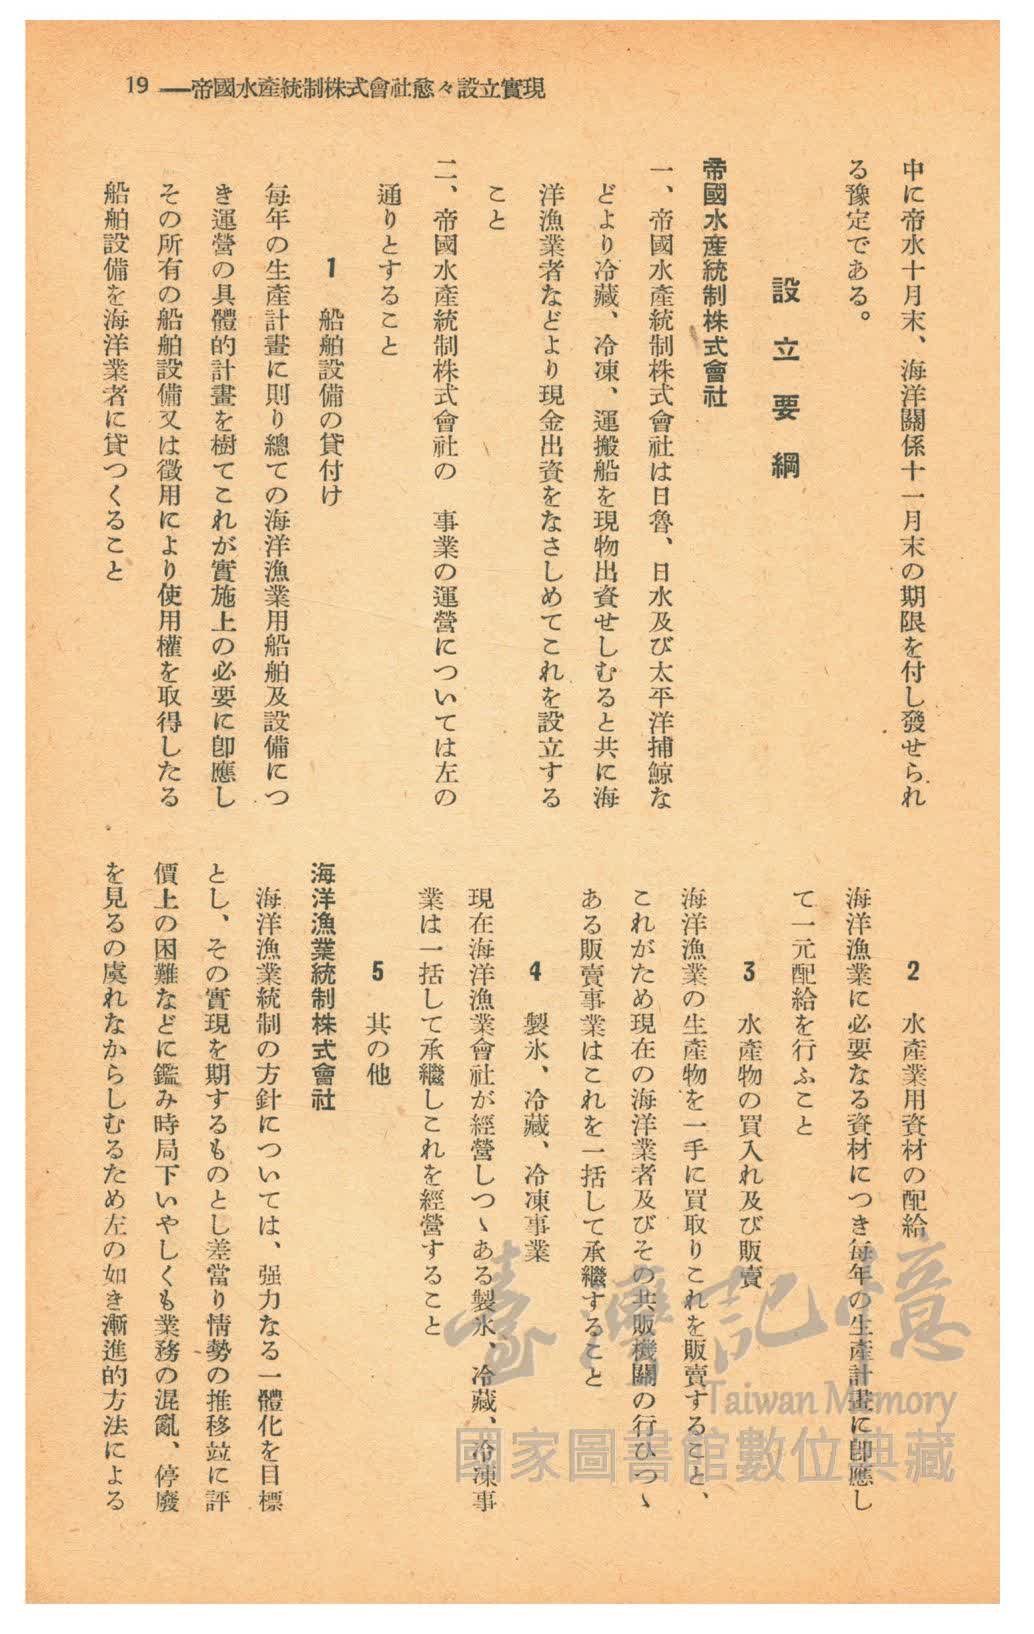 19 ――帝國水產統制株式會社愈々設立實現
中に帝水十月末、海洋關係十一月末の期限を付し發せられ
る豫定である。
設立要綱
帝國水產統制株式會社
一、帝國水產統制株式會社は日魯、日水及び太平洋捕鯨な
どより冷藏、冷凍、運搬船を現物出資せしむると共に海
洋漁業者などより現金出資をなさしめてこれを設立する
こと
二、帝國水產統制株式會社の 事業の運營については左の
通りとすること
1 船舶設備の貸付け
每年の生產計畫に則り總ての海洋漁業用船舶及設備につ
き運營の具體的計畫を樹てこれが實施上の必要に卽應し
その所有の船舶設備又は徵用により使用權を取得したる
船舶設備を海洋業者に貸つくること
2 水產業用資材の配給
海洋漁業に必要なる資材につき每年の生產計畫に卽應し
て一元配給を行ふこと
3 水產物の買入れ及び販賣
海洋漁業の生產物を一手に買取りこれを販賣すること、
これがため現在の海洋業者及びその共販機關の行ひつゝ
ある販賣事業はこれを一括して承繼すること
4 製氷、冷藏、冷凍事業
現在海洋漁業會社が經營しつゝある製氷、冷藏、冷凍事
業は一括して承繼しこれを經營すること
5 其の他
海洋漁業統制株式會社
海洋漁業統制の方針については、强力なる一體化を目標
とし、その實現を期するものとし差當り情勢の推移竝に評
價上の困難などに鑑み時局下いやしくも業務の混亂、停廢
を見るの虞れなからしむるため左の如き漸進的方法による
臺灣記憶
Taiwan Memory
國家圖書館數位典藏